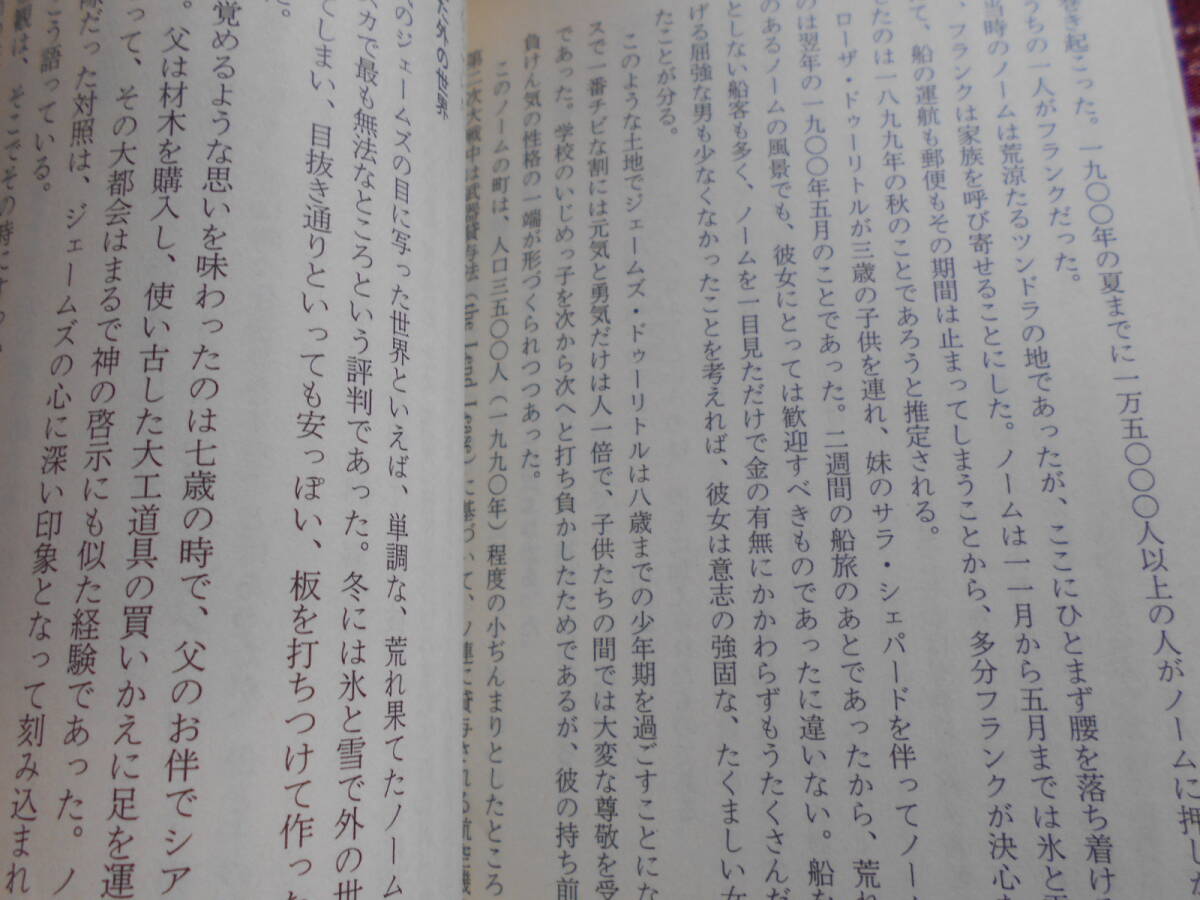 巻き起こった。一九〇〇年の夏までに一万五〇〇〇人以上の人がノームに押し
うちの一人がフランクだった。
当時のノームは荒涼たるツンドラの地であったが、ここにひとまず腰を落ち着け
、フランクは家族を呼び寄せることにした。ノームは一一月から五月までは氷と
て、船の運航も郵便もその期間は止まってしまうことから、多分フランクが決心
たのは一八九九年の秋のことであろうと推定される。
ローザ・ドゥーリトルが三歳の子供を連れ、妹のサラ・シェパードを伴ってノー
のは翌年の一九〇〇年五月のことであった。二週間の船旅のあとであったから、荒れ
のあるノームの風景でも、彼女にとっては歓迎すべきものであったに違いない。船な
としない船客も多く、ノームを一目見ただけで金の有無にかかわらずもうたくさんだ
げる屈強な男も少なくなかったことを考えれば、彼女は意志の強固な、たくましい女
たことが分る。
このような土地でジェームズ・ドゥーリトルは八歳までの少年期を過ごすことにな
スで一番チビな割には元気と勇気だけは人一倍で、子供たちの間では大変な尊敬を受
であった。学校のいじめっ子を次から次へと打ち負かしたためであるが、彼の持ち前
負けん気の性格の一端が形づくられつつあった。
このノームの町は、人口三五〇〇人（一九九〇年）程度の小ぢんまりとしたところ
第二次大戦中は武器貸与法（the Lend Lease）に基づいて、ソ連に貸与される航空機
外の世界
のジェームズの目に写った世界といえば、単調な、荒れ果てたノーム
スカで最も無法なところという評判であった。冬には氷と雪で外の世
てしまい、目抜き通りといっても安っぽい、板を打ちつけて作った
た。
覚めるような思いを味わったのは七歳の時で、父のお伴でシア
。父は材木を購入し、使い古した大工道具の買いかえに足を運
って、その大都会はまるで神の啓示にも似た経験であった。ノ
だった対照は、ジェームズの心に深い印象となって刻み込まれ
こう語っている。
観は、そこでその時に